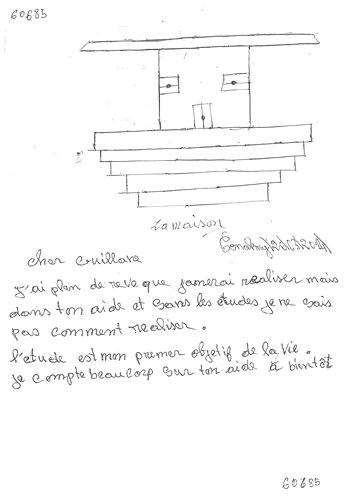 60685
La maison
cher Guillane
j'ai plan de reve que jamerai realiser mais
dans ton aide et sans les études je ne sais
pas comment realiser.
l'étude est mon premer objetif de la vie.
je compte beaucoup sur ton aide à bientôt
60685